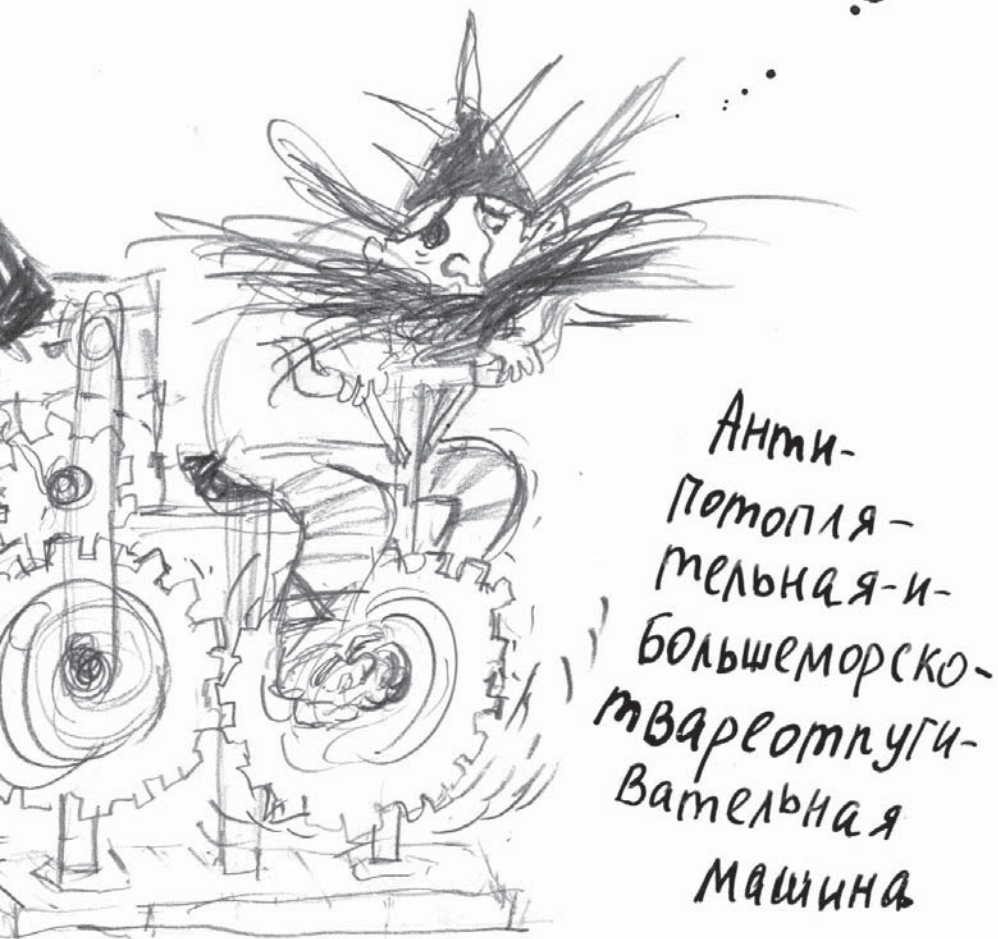 Анти-
потопля-
тельная-и-
большеморско-
твареотпуги-
вательная
машина